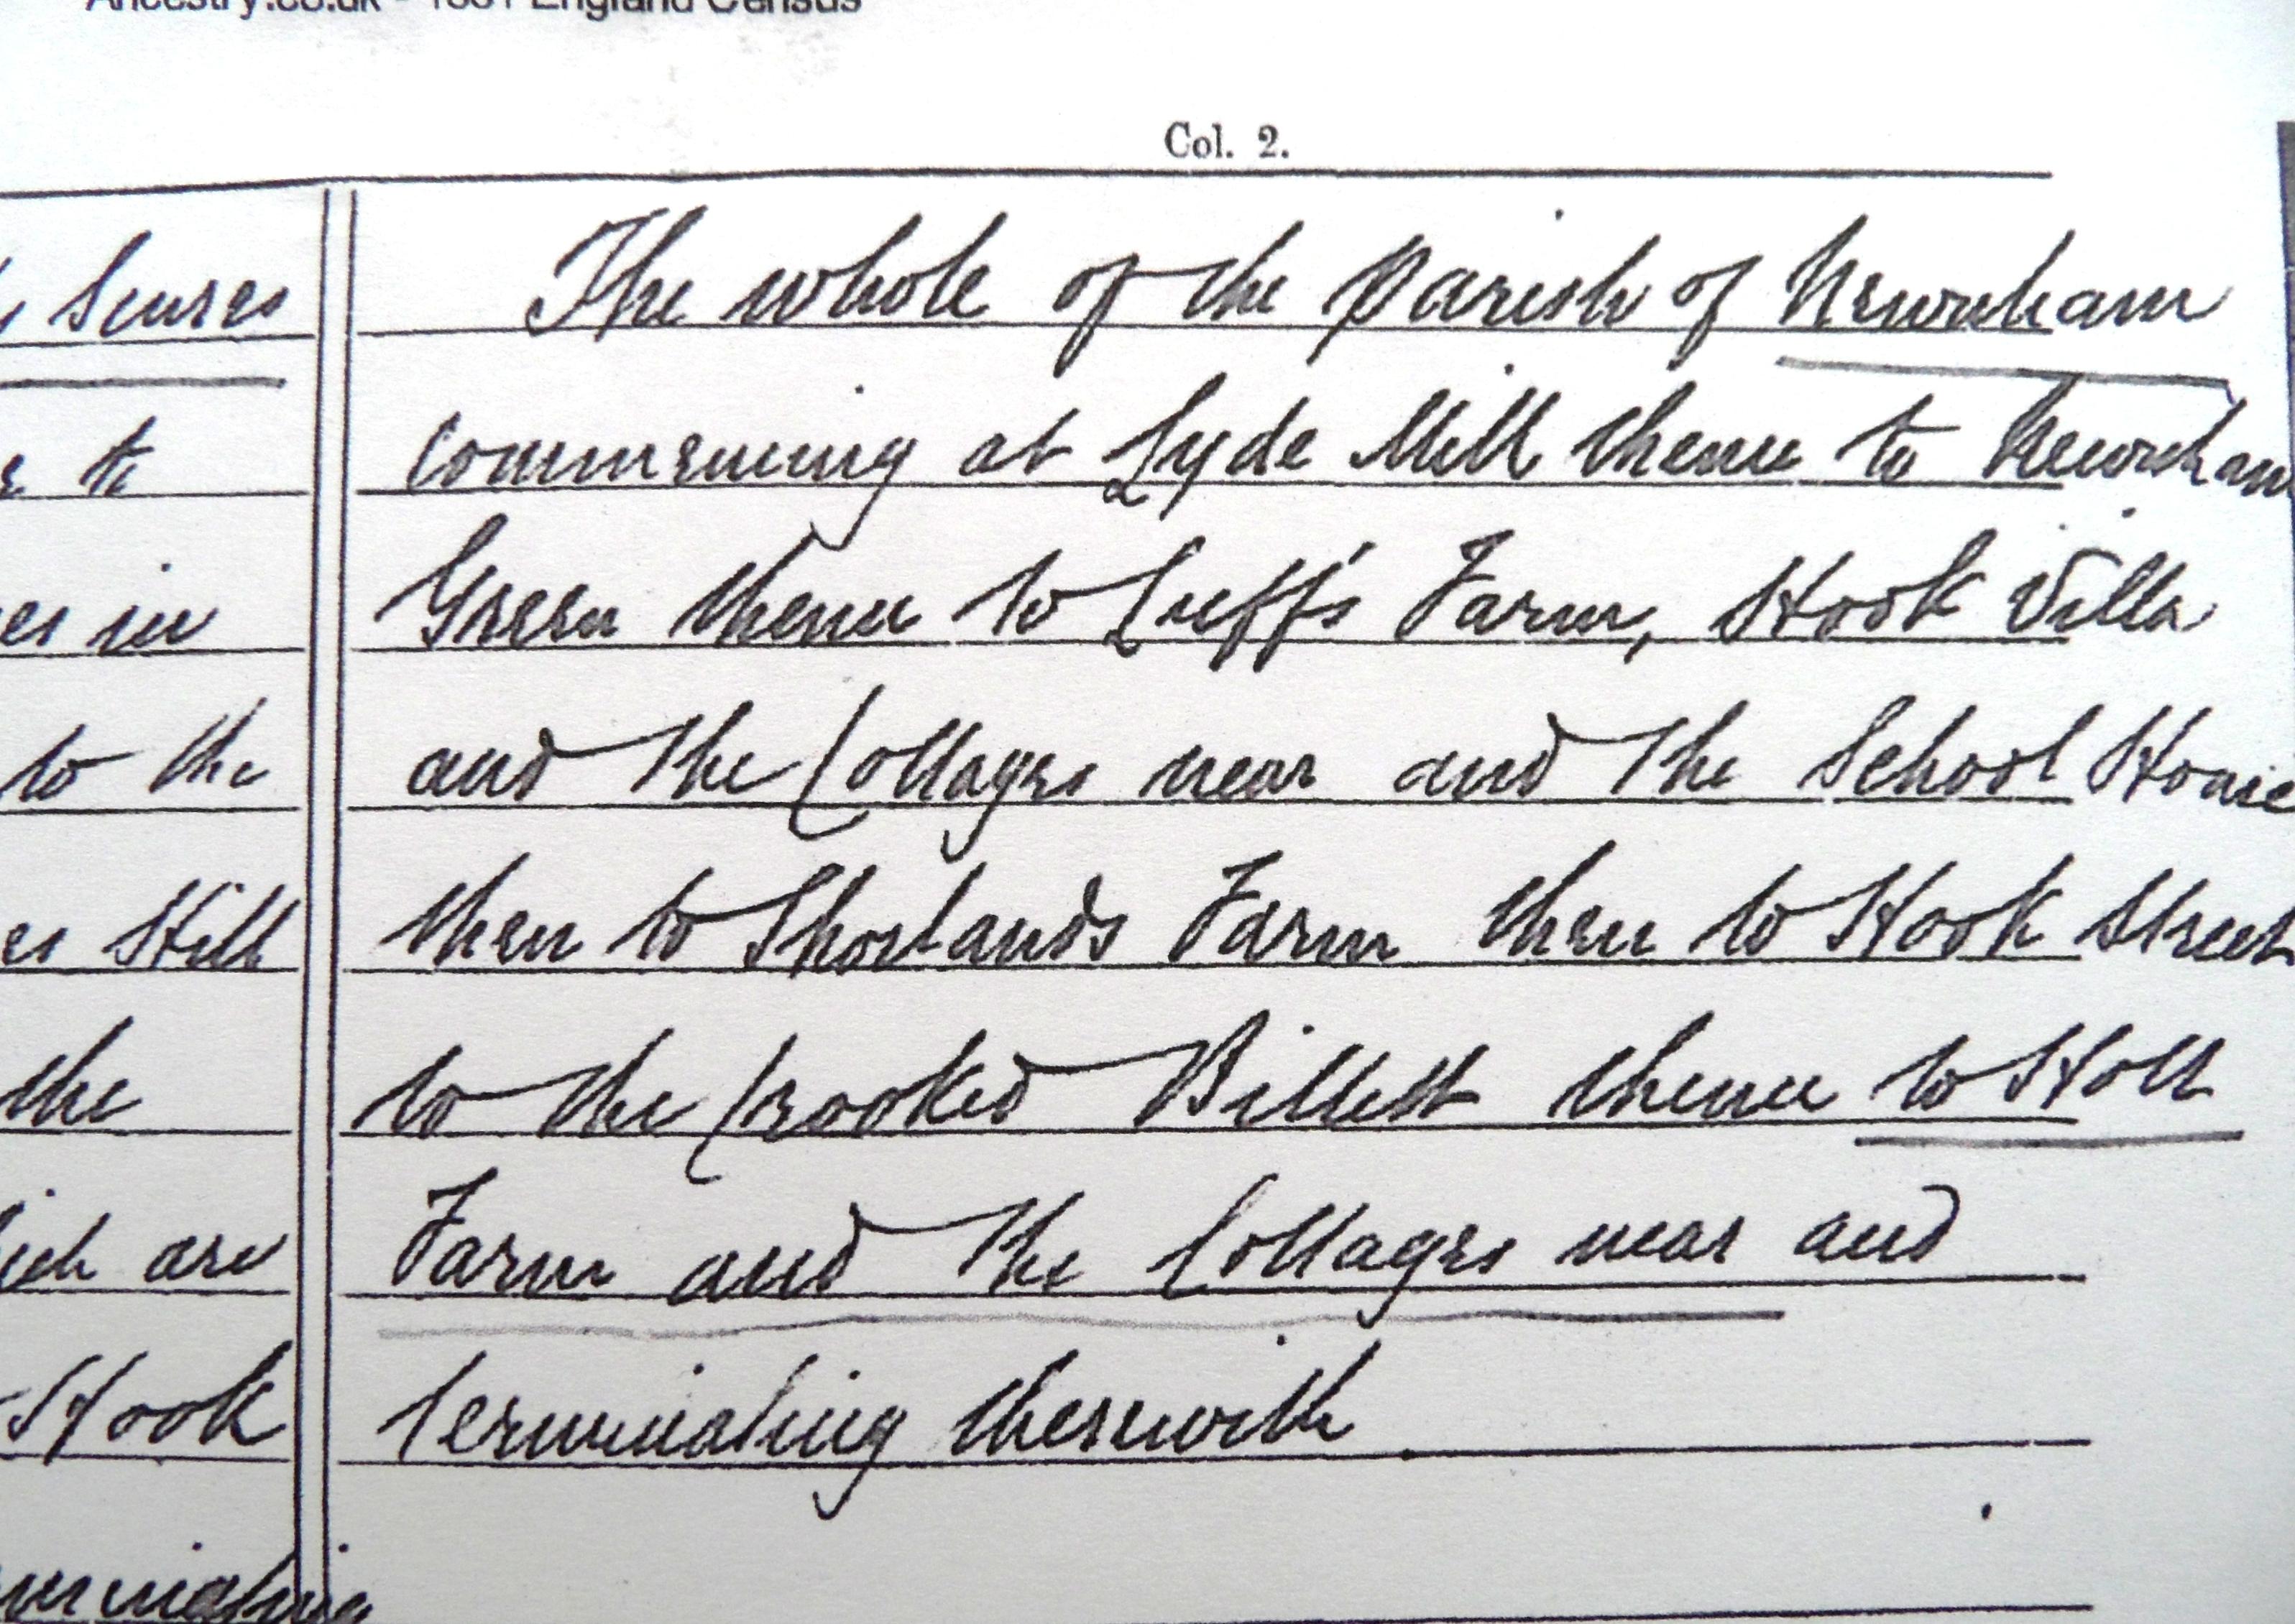 Ancestry.co.uk - 1881 England Census
Col. 2.
The whole of the Parish of Newnham
commencing at Lyde Mill thence to Newnham
Green thence to Luff's Farm, Hook Villa
and the Cottages near and the School House
then to Shorlands Farm then to Hook Street
to the Crooked Billett thence to Holt
Farm and the Cottages near and
terminating therewith
to
in
to the
Hill
the
are
Hook